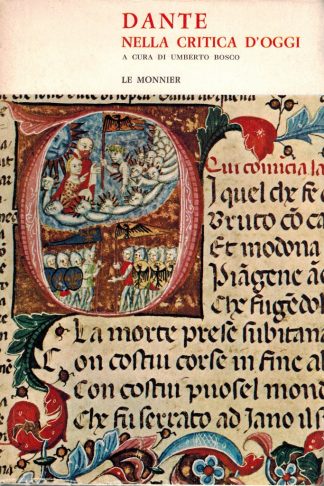 DANTE
NELLA CRITICA D'OGGI
A CURA DI UMBERTO BOSCO
LE MONNIER
Qui comicia la
D quel che fe
Bruto cō ca
Et modona
Piāgene
Che fugēdol
La morte prese subitana
Con costui corse in fine al
Con costui puosel mond
Che fu serrato ad Jano il s